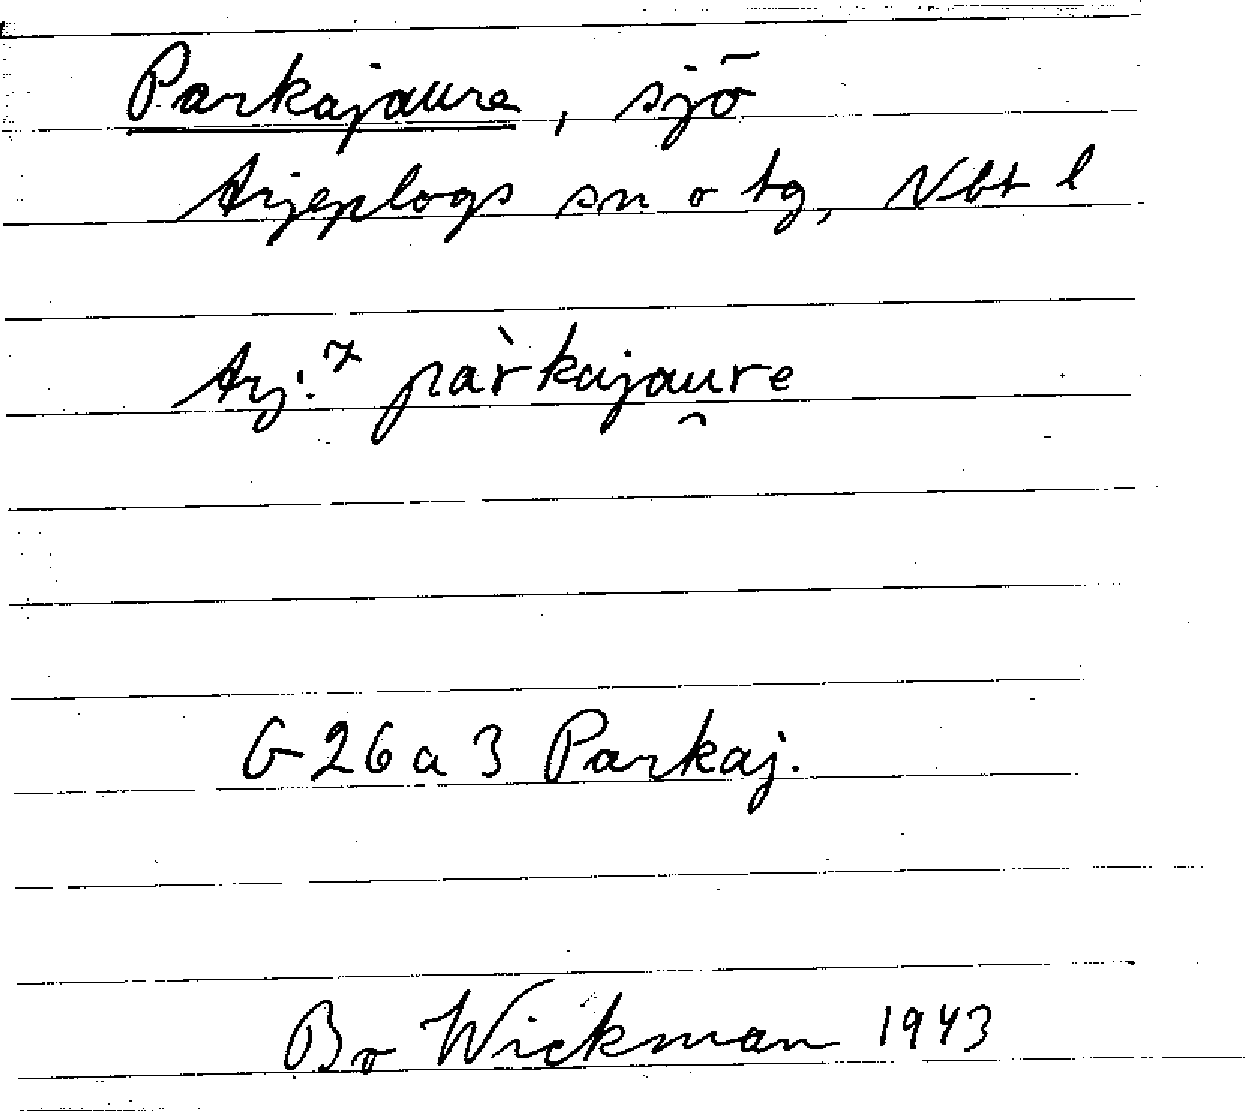 Parkajaure, sjö
Arjeplogs sn o tg, Nbt l
Arj. pàrkajau̯re
G 26 a 3 Parkaj.
Bo Wickman 1943